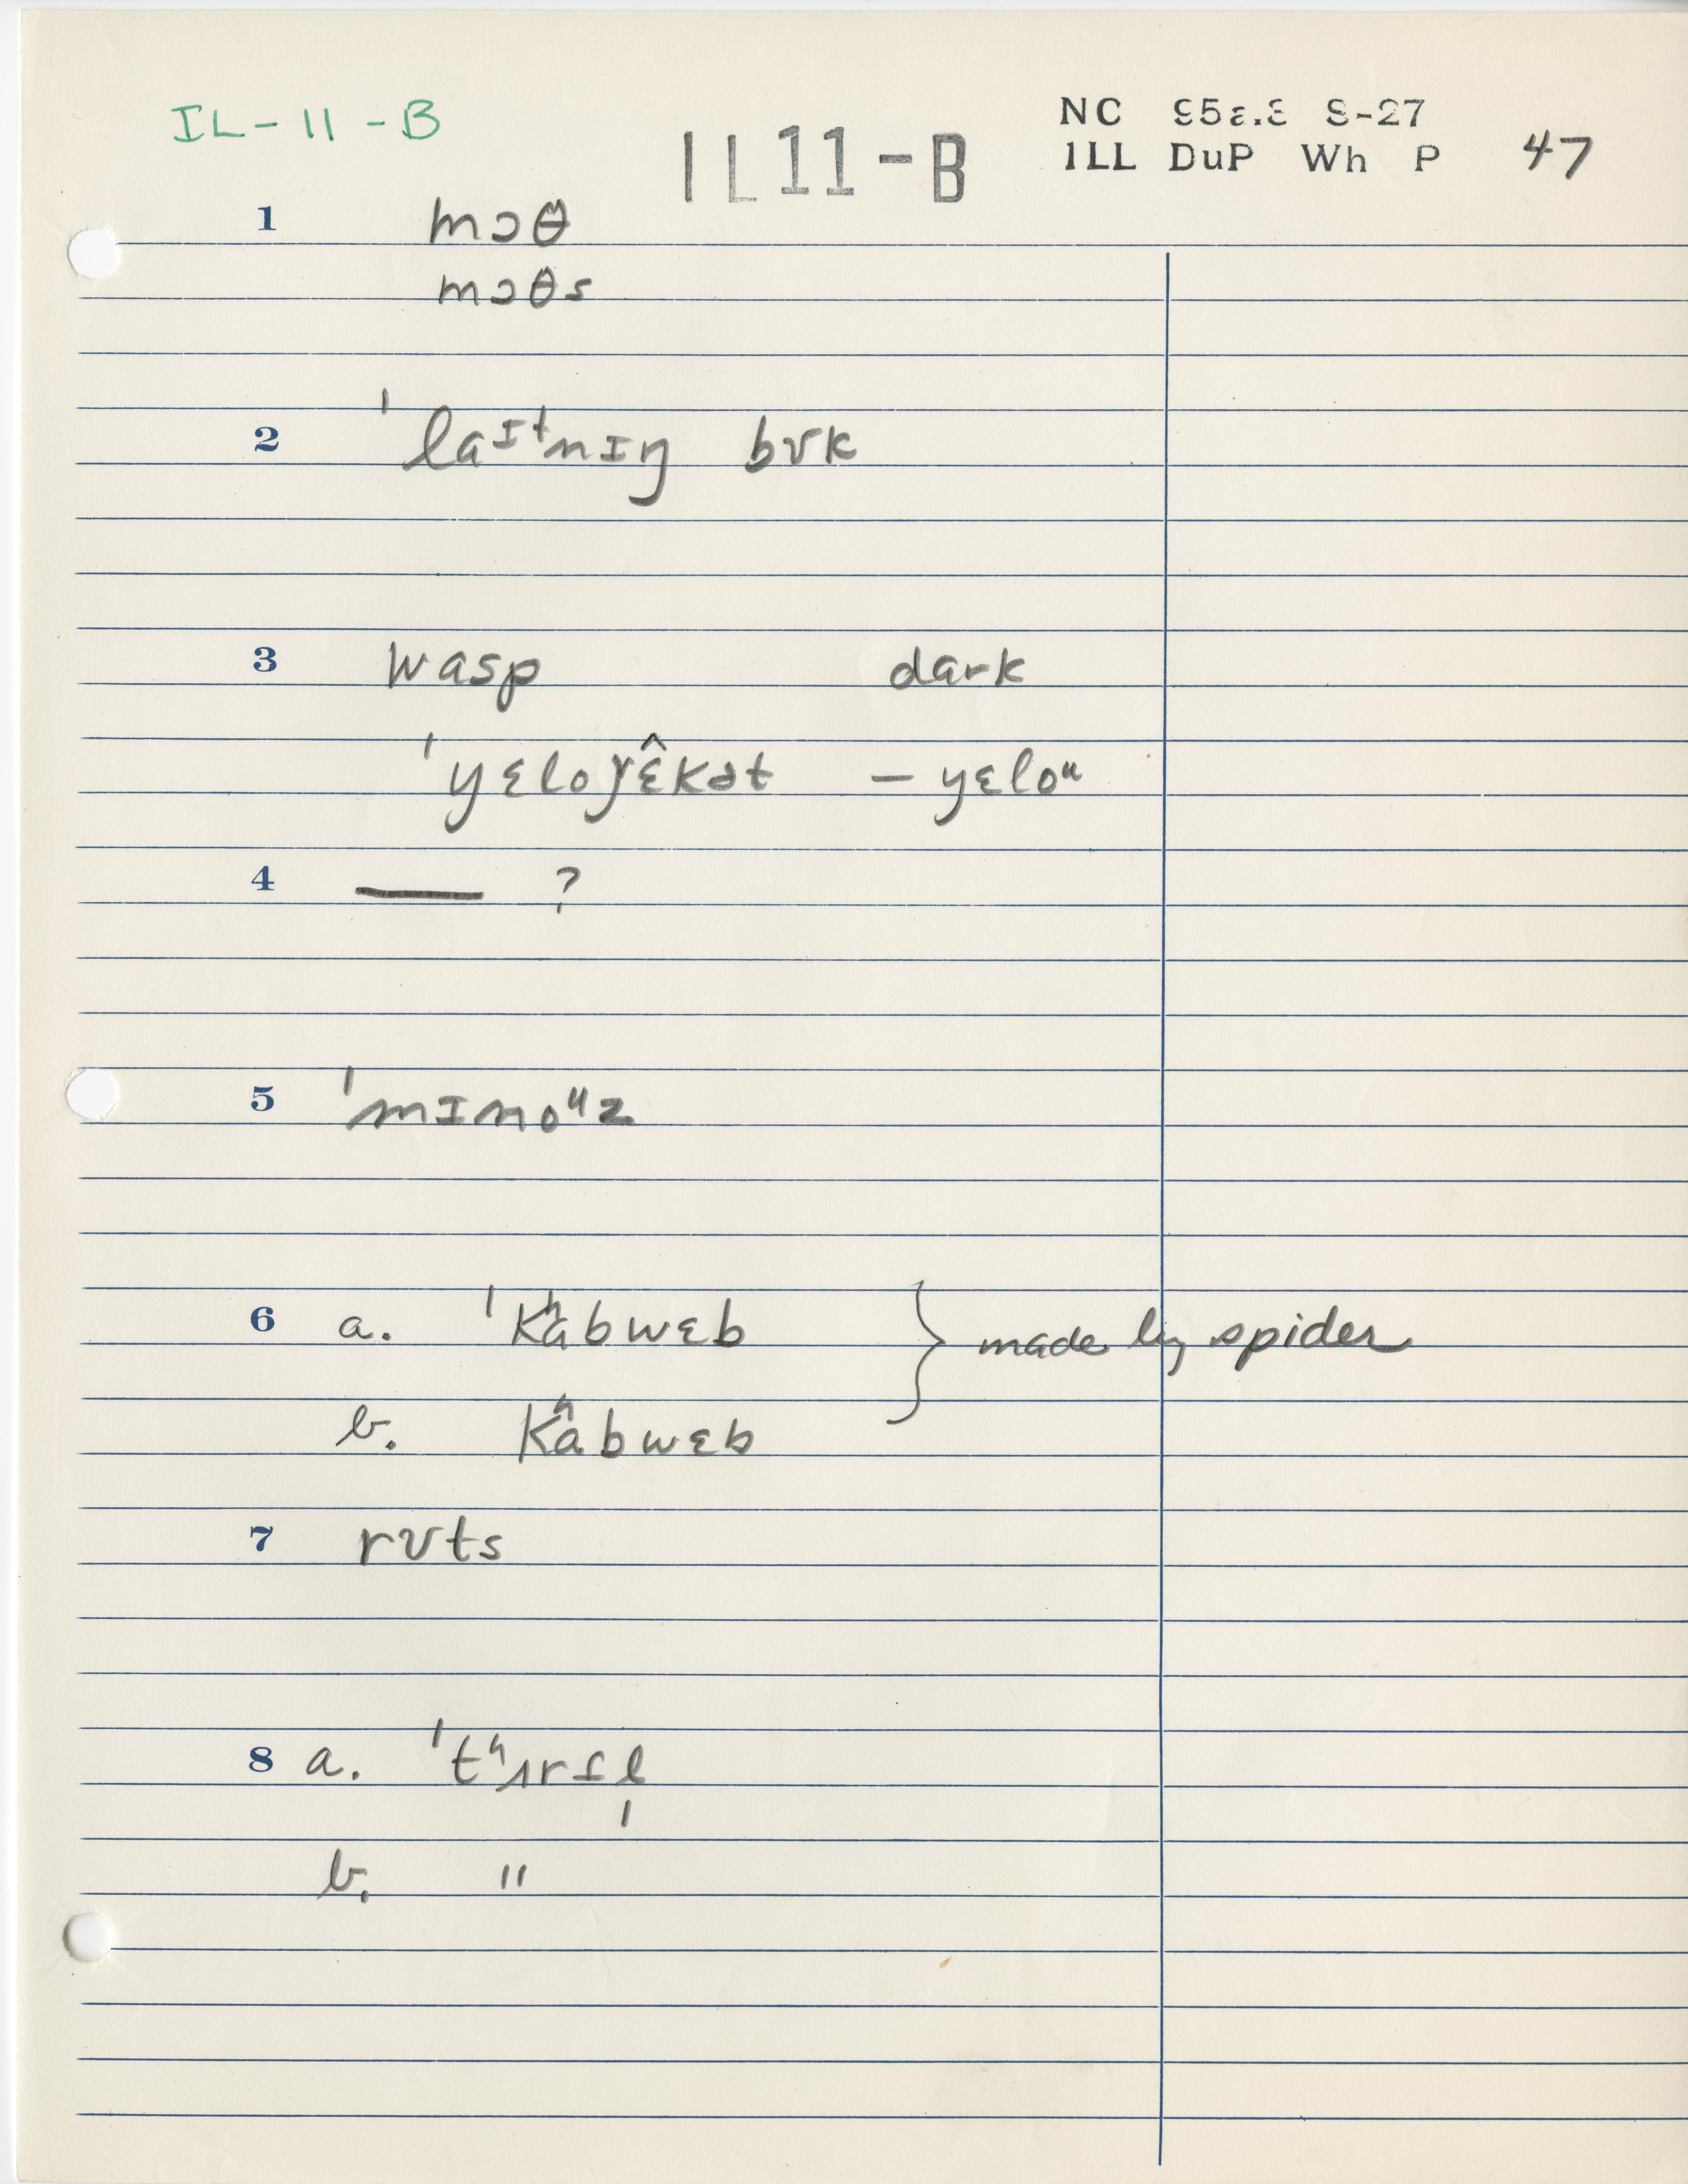 IL-11-B
IL11-B
NC 95a.8 S-27
ILL DuP Wh P 47
1 mɔθ
mɔθs
2 ˈlaᴵᵗnɪŋ bʊk
3 wasp dark
ˈyɛloy̌ɛ̂kət – yɛloᵘ
4 — ?
5 ˈmɪnoᵘz
6 a. ˈkʰabwɛb } made by spider
b. kʰabwɛb
7 rʊts
8 a. ˈtʰɜrɪl̩
b. "